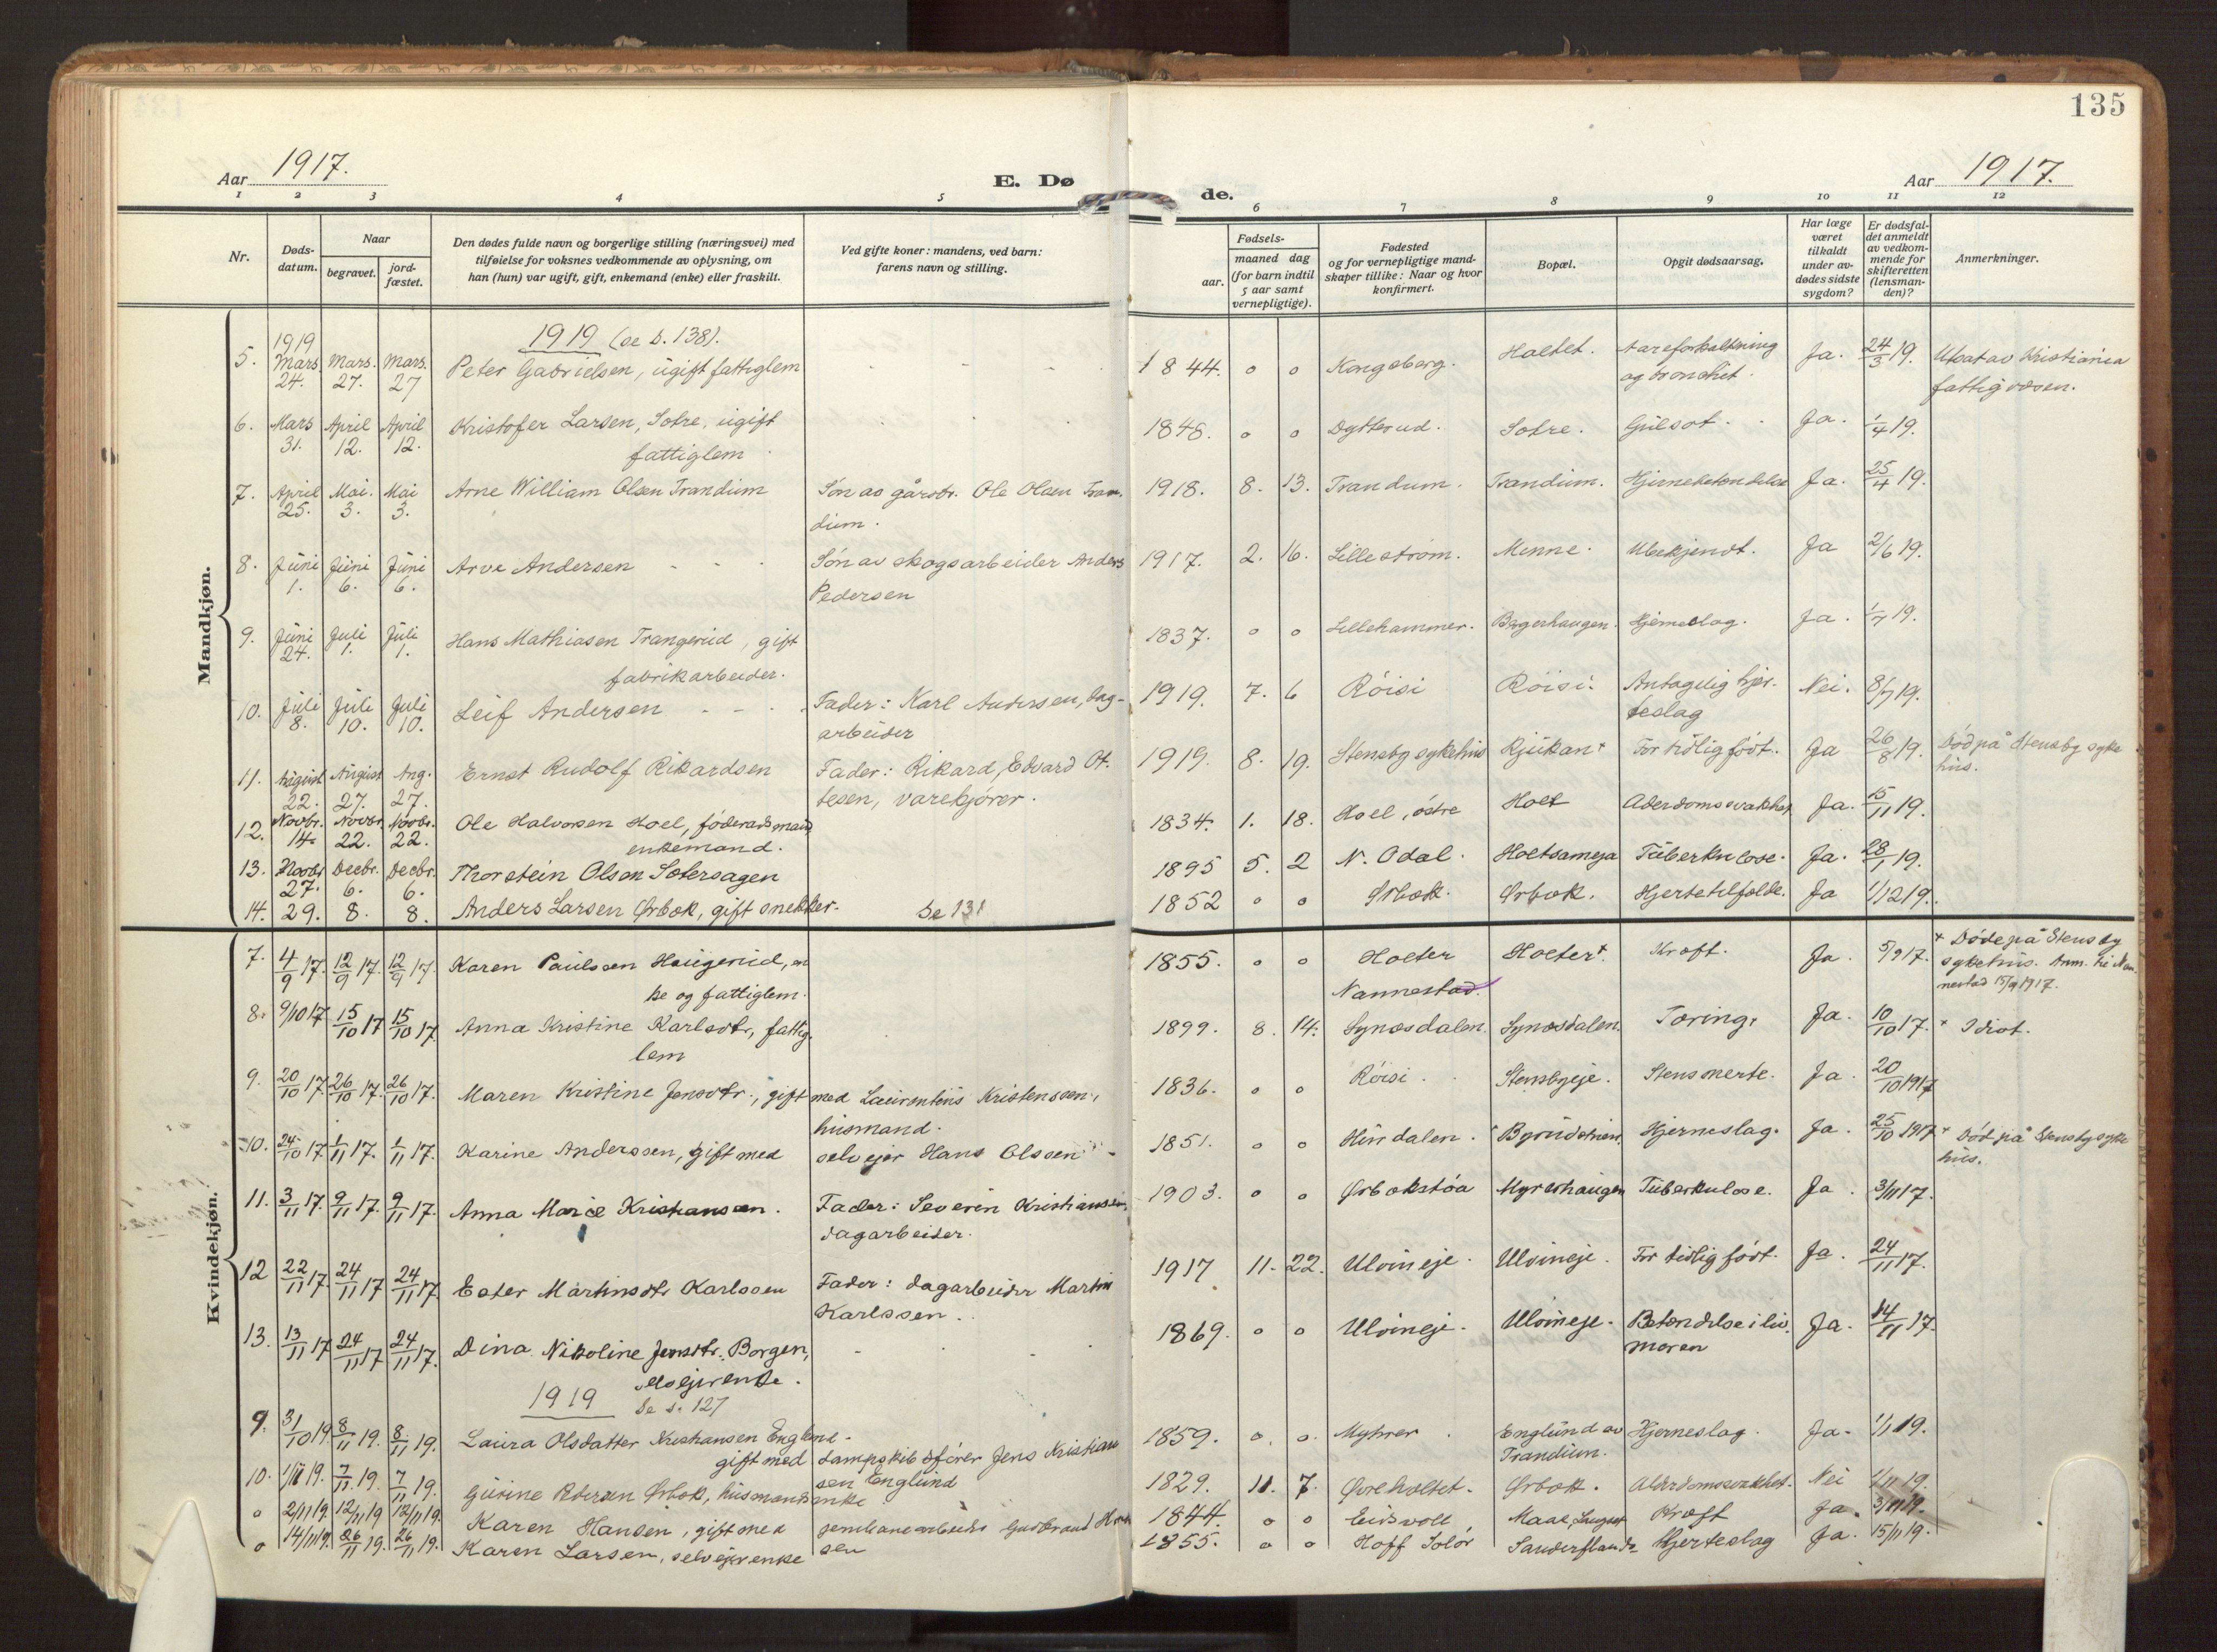 135
Aar 1917. E. Dø de. Aar 1917.
1 2 3 4 5 6 7 8 9 10 11 12
Nr. Døds-datum. Naar begravet. jord-fæstet. Den dødes fulde navn og borgerlige stilling (næringsvei) med tilføielse for voksnes vedkommende av oplysning, om han (hun) var ugift, gift, enkemand (enke) eller fraskilt. Ved gifte koner: mandens, ved barn: farens navn og stilling. Fødsels- aar. maaned dag (for barn indtil 5 aar samt vernepligtige). Fødested og for vernepligtige mandskaper tillike: Naar og hvor konfirmert. Bopæl. Opgit dødsaarsag. Har læge været tilkaldt under avdødes sidste sygdom? Er dødsfaldet anmeldt av vedkommende for skifteretten (lensmanden)? Anmerkninger.
Mandkjøn.
1919 1919 (se s. 138).
5. Mars 24. Mars. 27. Mars. 27 Peter Gabrielsen, ugift fattiglem 1844. o o Kongsberg. Holtet. Aareforkalkning og bronkit. Ja. 24/3 19. Utsat av Kristiania fattigvæsen.
6. Mars 31. April 12. April 12. Kristofer Larsen, Sotre, ugift fattiglem 1848. o o Dytterud. Sotre. Gulsot. Ja. 1/4 19.
7. April 25. Mai. 3. Mai 3. Arne William Olsen Trandum Søn av gårdbr. Ole Olsen Trandum. 1918. 8. 13. Trandum. Trandum. Hjernebetændelse Ja. 25/4 19.
8. Juni 1. Juni 6. Juni 6. Arve Andersen Søn av skogsarbeider Anders Pedersen 1917. 2. 16. Lillestrøm. Minne. Ubekjendt. Ja 2/6 19.
9. Juni 24. Juli 1. Juli 1. Hans Mathiasen Trangerud, gift fabrikarbeider. 1837. o o Lillehammer. Bagerhaugen. Hjerneslag. Ja. 1/7 19.
10. Juli 8. Juli 10. Juli 10. Leif Andersen Fader: Karl Andersen, dagarbeider 1919. 7. 6 Röisi Röisi. Antagelig hjerteslag Nei. 8/7 19.
11. August 22. August 27. Aug. 27. Ernst Rudolf Rikardsen Fader: Rikard Edvard Ottesen, varekjører. 1919. 8. 19. Stensby sykehus Rjukan + For tidlig født. Ja 26/8 19. Död på Stensby sykehus.
12. Novbr. 14 Novbr. 22. Novbr. 22. Ole Halvorsen Hoel, föderaadsmand enkemand. 1834. 1. 18. Hoel, östre Hoel Alderdomssvakhet Ja. 15/11 19.
13. Novbr 27. Decbr. 6. Decbr. 6. Thorstein Olsen Sotersagen 1895 5. 2 N. Odal. Holtsameja Tuberkulose. Ja. 28/11 19.
14. 29. 8. 8. Anders Larsen Ørbæk, gift snekker. Se 131 1852 o o Ørbæk. Ørbæk. Hjertetilfælde. Ja 1/12 19.
Kvindekjøn.
7. 4/9 17. 12/9 17. 12/9 17. Karen Paulssen Haugerud, enke og fattiglem. 1855. o o Holter Nannestad. Holter +. Kræft. Ja. 5/9 17. + Døde på Stensby sykehus. Anm. til Nannestad 15/9 1917.
8. 9/10 17 15/10 17 15/10 17. Anna Kristine Karlsdtr., fattiglem 1899. 8. 14. Synosdalen. Synosdalen. Tæring. Ja. 10/10 17. + Idiot.
9. 20/10 17. 26/10 17. 26/10 17. Maren Kristine Jensdtr., gift med Laurentius Kristenssen, husmand. 1836. o o Röisi. Stensbyeje. Stensmerte. Ja. 20/10 1917
10. 24/10 17 1/11 17. 1/11 17. Karine Anderssen, gift med selveier Hans Olssen 1851. o o Hurdalen. Hjerneslag. Ja. 25/10 1917 + Död på Stensby sykehus.
11. 3/11 17. 9/11 17. 9/11 17. Anna Marie Kristiansen. Fader: Severin Kristiansen, dagarbeider. 1903. o o Ørbækstøa Myrerhaugen Tuberkulose. Ja. 3/11 17.
12 22/11 17. 24/11 17 24/11 17. Ester Martinsdtr Karlssen Fader: dagarbeider Martin Karlssen. 1917 11. 22. Ulvineje. Ulvineje. For tidlig født. Ja. 24/11 17.
13. 13/11 17 24/11 17 24/11 17. Dina Nikoline Jensdtr. Borgen, selvejerenke. 1869. o o Ulvineje. Ulvineje. Betændelse i livmoren Ja. 14/11 17.
1919 Se s. 127
9. 31/10 19. 8/11 19. 8/11 19. Laura Olsdatter Kristiansen Englund. gift med dampskibsfører Jens Kristiansen Englund 1859. o. o. Myhrer. Englund av Trandum. Hjerneslag. Ja. 1/11 19.
10. 1/11 19. 7/11 19. 7/11 19. Gurine Pedersen Ørbæk, husmandsenke 1829. 11. 7. Øvreholtet. Ørbæk. Alderdomssvakhet. Nei 1/11 19.
o 2/11 19. 12/11 19 12/11 19. Karen Hansen, gift med jernbanearbeider Gudbrand Hansen 1844. o o Eidsvoll Kræft Ja. 3/11 19.
o 14/11 19. 26/11 19. 26/11 19. Karen Larsen, selvejerenke 1855. o o Hoff Solör Hjerteslag Ja. 15/11 19.